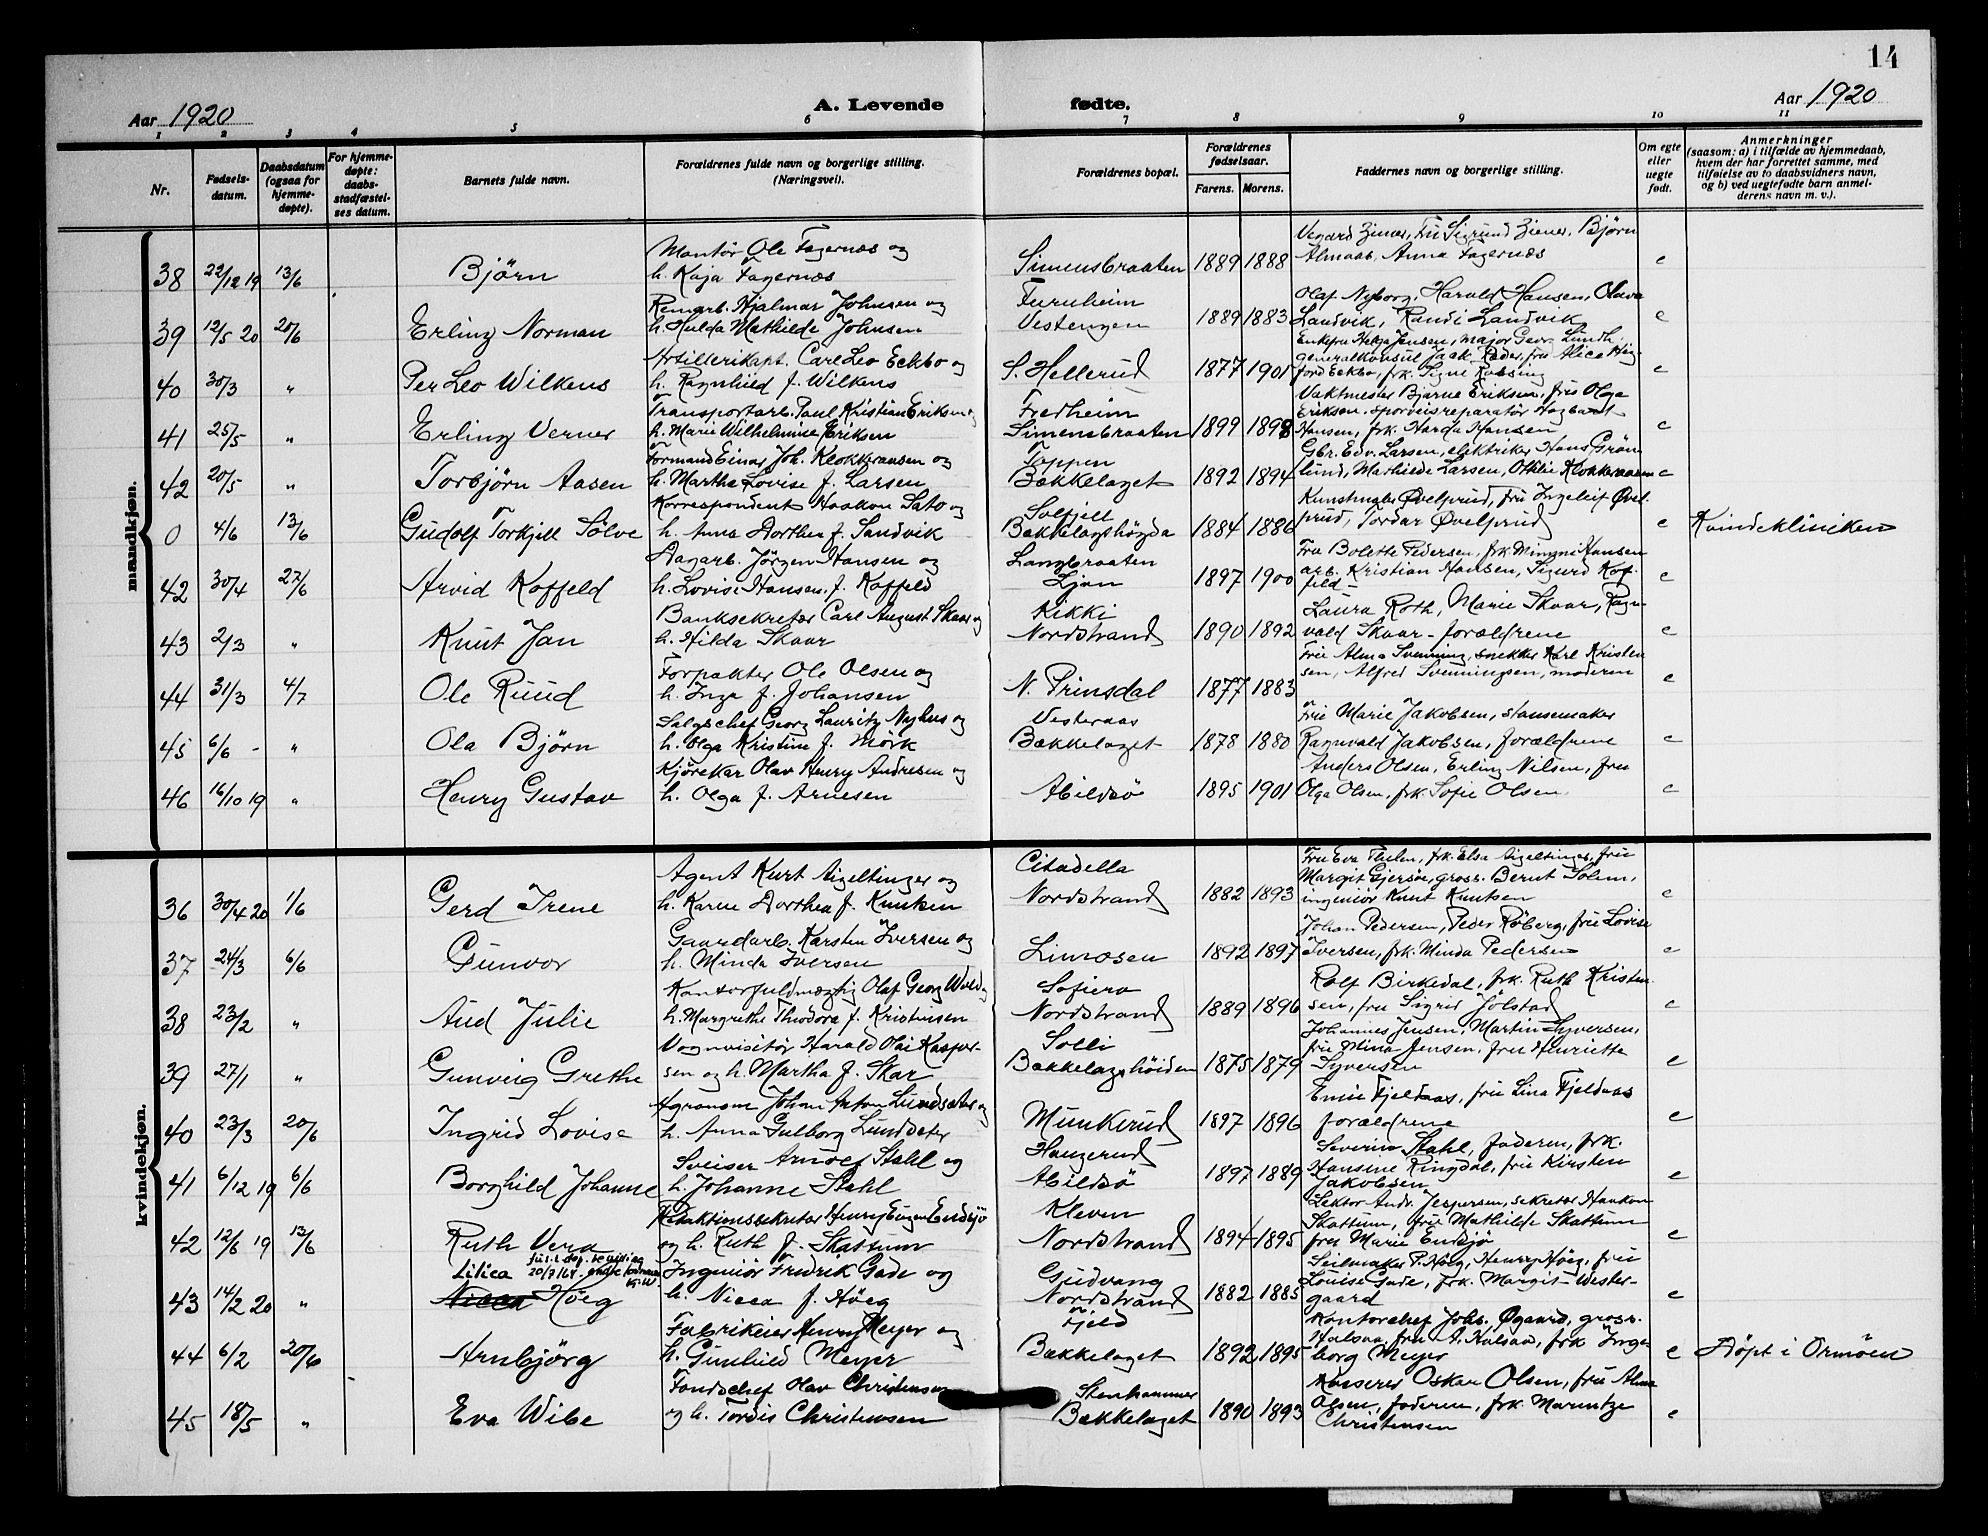 14
Aar 1920
A. Levende fødte.
Aar 1920
1 2 3 4 5 6 7 8 9 10 11
Nr.
Fødsels-
datum.
Daabsdatum
(ogsaa for
hjemme-
døpte).
For hjemme-
døpte:
daabs-
stadfæstel-
ses datum.
Barnets fulde navn.
Forældrenes fulde navn og borgerlige stilling.
(Næringsvei).
Forældrenes bopæl.
Forældrenes
fødselsaar.
Farens. Morens.
Faddernes navn og borgerlige stilling.
Om egte
eller
uegte
født.
Anmerkninger
(saasom: a) i tilfælde av hjemmedaab,
hvem der har forrettet samme, med
tilføielse av to daabsvidners navn,
og b) ved uegtefødte barn anmel-
derens navn m. v.).
mandkjøn.
38 22/12 19 13/6 Björn
Montör Ole Fagernæs og
h. Kaja Fagernæs
Simensbraaten 1889 1888
Vegard Ziener, Fru Sigrund Ziener, Björn
Almaas, Anna Fagernæs e
39 12/5 20 20/6 Erling Norman
Remarb. Hjalmar Johnsen og
h. Hulda Mathilde Johnsen
Furuheim
Vestengen 1889 1883
Olaf Nyborg, Harald Hansen, Olava
Landvik, Randi Landvik e
40 30/3 " Per Leo Wilkens
Artillerikapt. Carl Leo Eckbo og
h. Ragnhild f. Wilkens
S. Hellerud 1877 1901
Enkefru Helga Jensen, major Georg Lundh,
generalkonsul Jaak. Ræder, fru Alice
ford Eckbo, frk. Signe e
41 25/5 " Erling Verner
Transportarb. Paul Kristian Eriksen og
h. Marie Wilhelmine Eriksen
Fredheim
Simensbraaten 1899 1898
Vaktmester Bjarne Eriksen, fru Olga
Eriksen, sporveisreparatör Hagbart
Hansen, frk. Harda Hansen e
42 20/5 " Torbjörn Aasen
Formand Einar Joh. Klokkeraasen og
h. Martha Lovise f. Larsen
Toppen
Bækkelaget 1892 1894
Gbr. Edv. Larsen, elektriker Hans Grön-
lund, Mathilde Larsen, Ottilie Klokkeraasen e
0 4/6 13/6 Gudolf Torkjell Sölve
Korrespondent Haakon Sato og
h. Anna Dorthea f. Sandvik
Solfjell
Bækkelagshögda 1884 1886
Kunstmaler Øvelprud, fru Ingeleif Øvel-
prud, Tordar Øvelprud e Kvindekliniken
42 30/4 27/6 Arvid Koffeld
Dagarb. Jörgen Hansen og
h. Lovise Hansen f. Koffeld
Langbraaten
Ljan 1897 1900
Fru Bolette Pedersen, frk. Mimmi Hansen
arb. Kristian Hansen, Sigurd Kof-
feld e
43 2/3 " Knut Jan
Banksekretær Carl August Skaar og
h. Hilda Skaar
Kikki
Nordstrand 1890 1892
Laura Roth, Marie Skaar, Ragn-
vald Skaar - forældrene e
44 31/3 4/7 Ole Ruud
Forpakter Ole Olsen og
h. Inga f. Johansen
N. Prinsdal 1877 1883
Fru Alma Svenning, snekker Karl Kristen
sen, Alfred Svenningsen, moderen e
45 6/6 - " Ola Björn
Salgschef Georg Lauritz Nyhus og
h. Olga Kristine f. Mörk
Vesteraas
Bækkelaget 1878 1880
Fru Marie Jakobsen, stansemaker
Ragnvald Jakobsen, forældrene e
46 16/10 19 " Henry Gustav
Kjörekar Olav Henry Andresen og
h. Olga f. Arnesen
Abildsö 1895 1901
Anders Olsen, Erling Nilsen, fru
Olga Olsen, frk. Sofie Olsen e
kvindekjøn.
36 30/4 20 1/6 Gerd Irene
Agent Kurt Aigeltinger og
h. Karen Dorthea f. Knutsen
Citadella
Nordstrand 1882 1893
Fru Eva Thelen, frk. Elsa Aigeltinger, fru
Margit Gjersöe, gross. Bernt Solem,
ingeniör Knut Knutsen e
37 24/3 6/6 Gunvor
Gaardarb. Karsten Iversen og
h. Minda Iversen
Limosen 1892 1897
Johan Pedersen, Peder Röberg, fru Lovise
Iversen, frk. Minda Pedersen e
38 23/2 " Aud Julie
Kontorfuldmægtig Olaf Georg Wold og
h. Margrethe Theodora f. Kristensen
Sofiero
Nordstrand 1889 1896
Rolf Birkedal, frk. Ruth Kristen-
sen, fru Sigrid Jölstad e
39 27/1 " Gunveig Grethe
Vognvisitör Harald Olai Kasper-
sen og h. Martha f. Skar
Solli
Bækkelagshöiden 1875 1879
Johannes Jensen, Martin Syversen,
fru Mina Jensen, fru Henriette
Syversen e
40 23/3 20/6 Ingrid Lovise
Agronom Johan Anton Lundsæter og
h. Anna Gulborg Lundsæter
Munkerud 1897 1896
Emil Fjeldaas, fru Lina Fjeldaas
forældrene e
41 6/12 19 6/6 Borghild Johanne
Sveiser Arnolf Stahl og
h. Johanne Stahl
Haugerud
Abildsö 1897 1889
Severin Stahl, faderen, frk.
Hansine Ringdal, fru Kirsten
Jakobsen e
42 12/6 19 13/6 Ruth Vera
Redaktionssekretær Henry Eugen Endsjö
og h. Ruth f. Skattum
Kleven
Nordstrand 1894 1895
Lektor Andr. Jespersen, sekretær Haakon
Skattum, fru Mathilde Skattum
fru Marie Endsjö e
Lilica
43 14/2 20 " Nicca Höeg
Ingeniör Fredrik Gade og
h. Nicca f. Höeg
Gudvang
Nordstrand 1882 1885
Seilmaker P. Höeg, Henry Höeg, fru
Louise Gade, frk. Margit Wester-
gaard e
44 6/2 20/6 Arnbjörg
Fabrikeier Henry Meyer og
h. Gunhild Meyer
Fjeld
Bækkelaget 1892 1895
Kontorchef Johs. Øgaard, gross.
Hulsaa, fru A. Hulsaa, frk Inge-
borg Meyer e Döpt i Ormöen
45 18/5 " Eva Wibe
Fondschef Olav Christensen
og h. Tordis Christensen
Stenhammer
Bækkelaget 1890 1893
Kasserer Oskar Olsen, fru Alma
Olsen, faderen, frk. Marentze
Christensen e